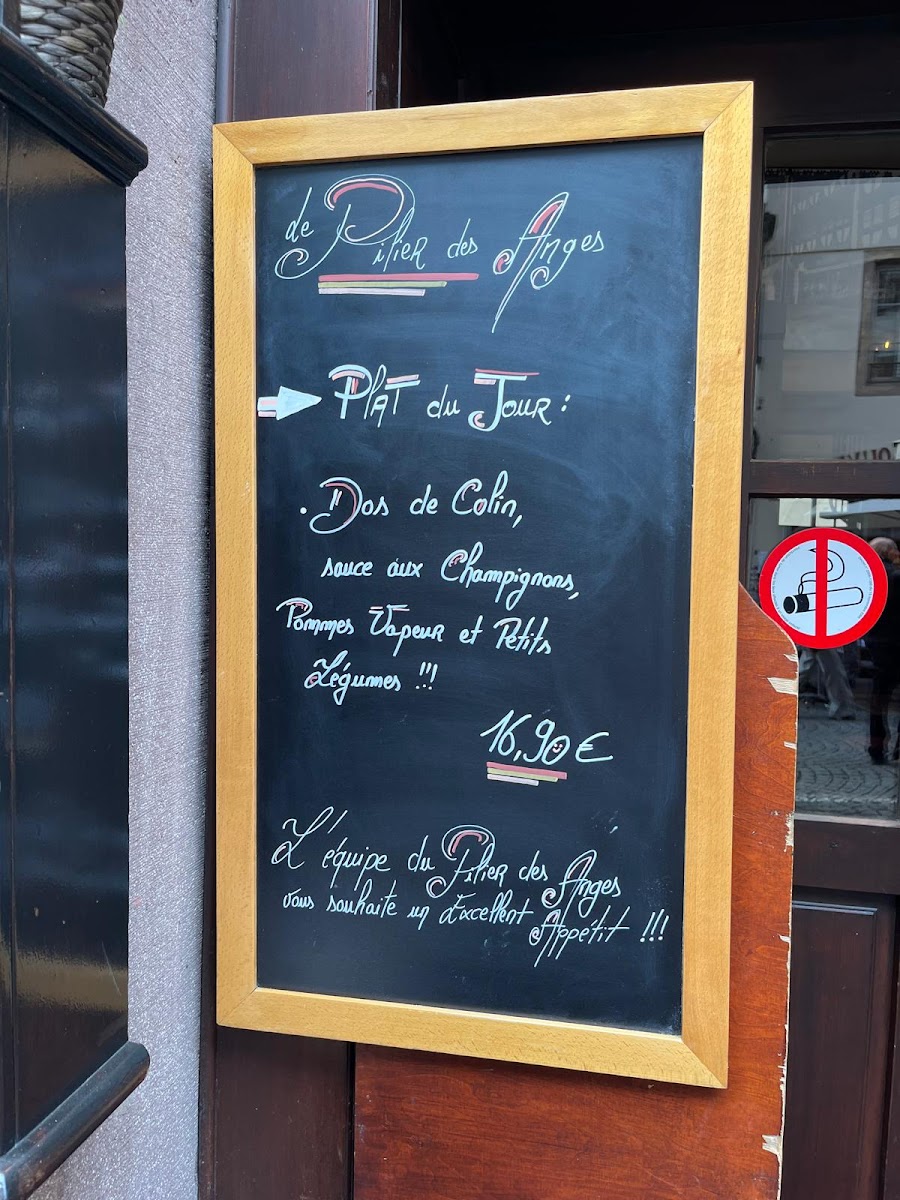 Le Pilier des Anges
Plat du Jour :
. Dos de Colin,
sauce aux Champignons,
Pommes Vapeur et Petits
Légumes !!!
16,90 €
L'équipe du Pilier des Anges
vous souhaite un Excellent Appétit !!!